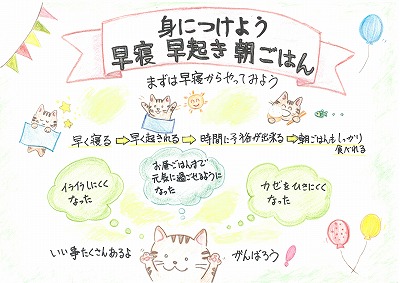 身につけよう
早寝 早起き 朝ごはん
まずは早寝からやってみよう
早く寝る➡早く起きれる➡時間に余裕が出来る➡朝ごはんもしっかり食べれる
イライラしにくくなった
お昼ごはんまで元気に過ごせるようになった
カゼをひきにくくなった
いい事たくさんあるよ
がんばろう